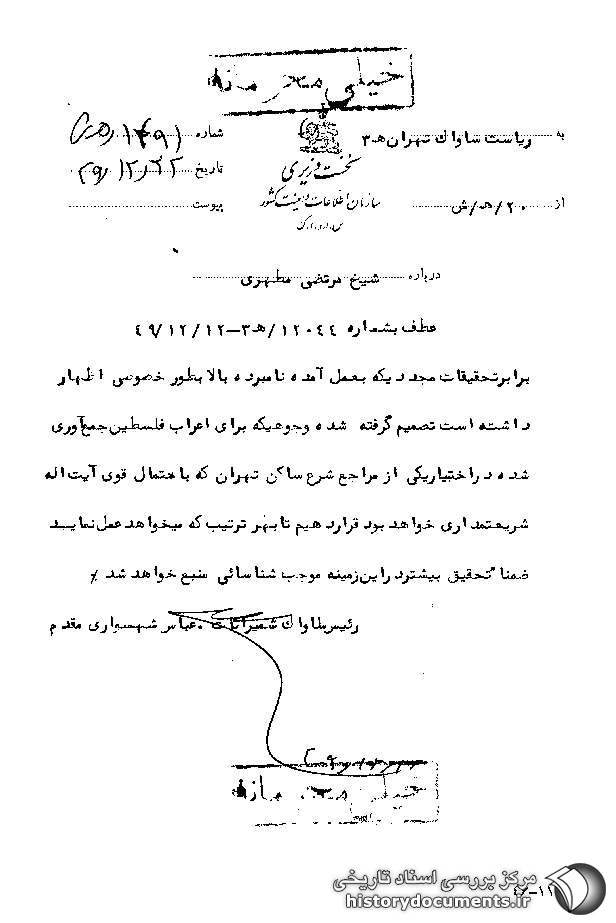 خیلی محرمانه
به ریاست ساواک تهران ه‍ـ ۳
شماره
نخست وزیری
تاریخ ۴۹/۱۲/۲۲
سازمان اطلاعات و امنیت کشور
س.ا.و.ا.ک
از ۲۰/ه‍/ش
پیوست
درباره شیخ مرتضی مطهری
عطف بشماره ۱۲۰۴۴/ه‍ـ۳–۴۹/۱۲/۱۲
برابر تحقیقات مجددیکه بعمل آمده نامبرده بالا بطور خصوصی اظهار
داشته است تصمیم گرفته شده وجوهیکه برای اعراب فلسطین جمع‌آوری
شده در اختیاریکی از مراجع شرع ساکن تهران که با حتمال قوی آیت اله
شریعتمداری خواهد بود قرار دهیم تا بهر ترتیب که میخواهد عمل نمایید
ضمنا" تحقیق بیشتر در این زمینه موجب شناسائی منبع خواهد شد /
رئیس ساواک شمیرانات . عباس شهسواری مقدم
خیلی محرمانه
مرکز بررسی اسناد تاریخی
historydocuments.ir